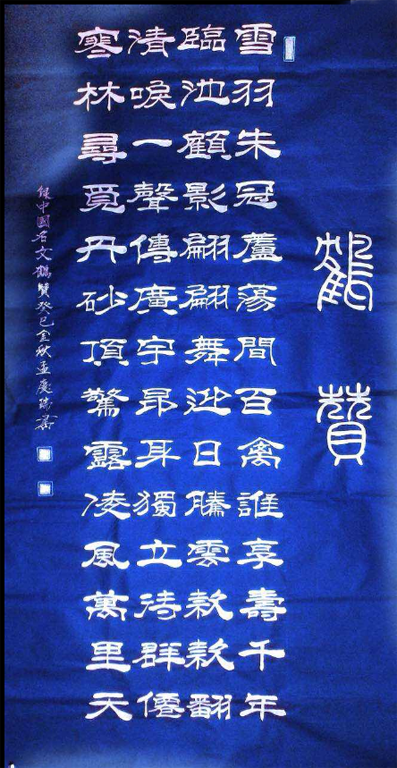 鶴贊
雪羽朱冠蘆蕩間百禽誰享壽千年
臨池顧影翩翩舞迎日騰雲款款翻
清唳一聲傳廣宇昂耳獨立待群僊
寒林尋覓丹砂頂驚露凌風萬里天
中國名文鶴贊癸巳金秋孟慶瑞書